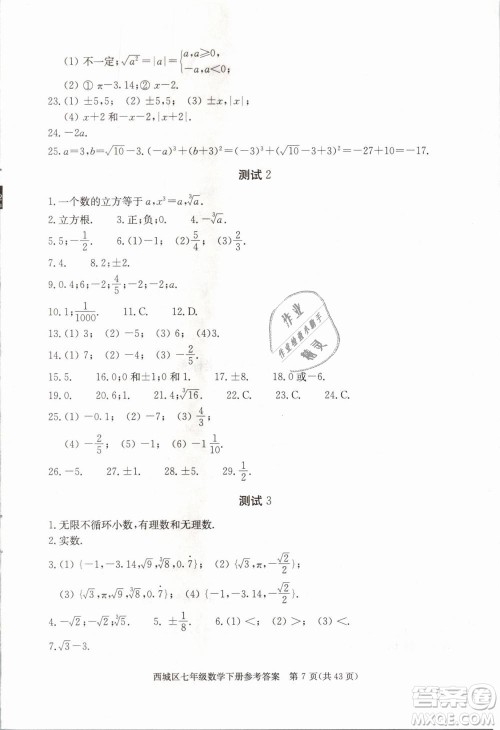 (1) 不一定;√a² = |a| = {a,a≥0, -a,a<0;
(2) ① π-3.14;② x-2.
23.(1) ±5,5; (2) ±5,5; (3) ±x,|x|;
(4) x+2 和-x-2,|x+2|.
24.-2a.
25.a=3,b=√10-3.(-a)³+(b+3)²=(-3)³+(√10)²=-27+10=-17.
测试 2
1.一个数的立方等于 a,x³=a,∛a.
2.立方根. 3.正;负;0. 4.a;a;-∛a.
5.5;-1/2. 6.(1) -1; (2) 5/4; (3) 2/5.
7.4. 8.2;±2.
9.0.4;6;-2;4/5;-2;-2;a.
10.1;1/1000. 11.C. 12.D.
13.(1) ±2; (2) -4.
14.(1) 7; (2) -3; (3) -5/2.
15.5. 16.-1,0,1. 17.0. 18.0 或-6.
19.0. 20.±4. 21.4;∛16. 22.C. 23.C. 24.C.
25.(1) -0.1; (2) -3; (3) 4/3;
(4) -2/5; (5) -1; (6) -3.
26.-5. 27.±1. 28.±2. 29.1/2.
测试 3
1.无限不循环小数,有理数和无理数.
2.实数.
3.(1) {-1,-3.14,√9,∛8,0.7̇} (2) {∛3,π,-√2/2}
(3) {√3,π,√9,∛8,0.7̇} (4) {-1,-3.14,-√2/2}
4.-√6;-√2;∛5. 5.±1/8. 6.√2.
7.√3-1.
西城区七年级数学下册参考答案 第 7 页(共 43 页)
作业
作业检查小助手
精灵